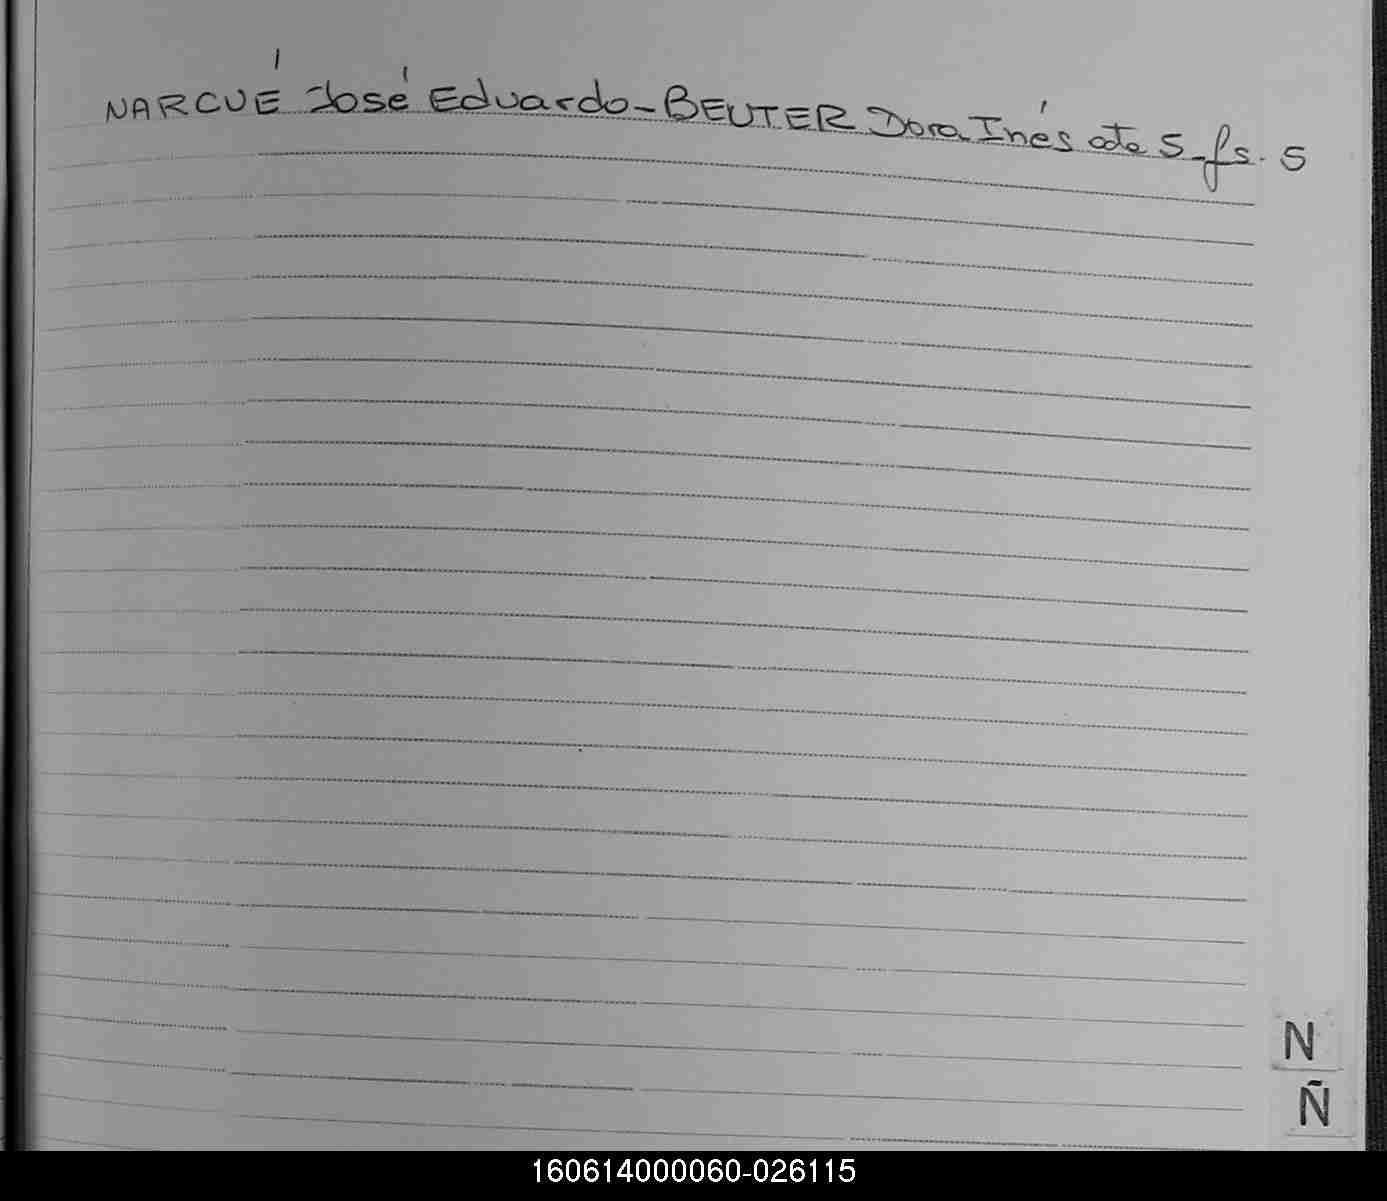 NARCUÉ José Eduardo - BEUTER Dora Inés acta 5 - fs. 5
N
Ñ
160614000060-026115